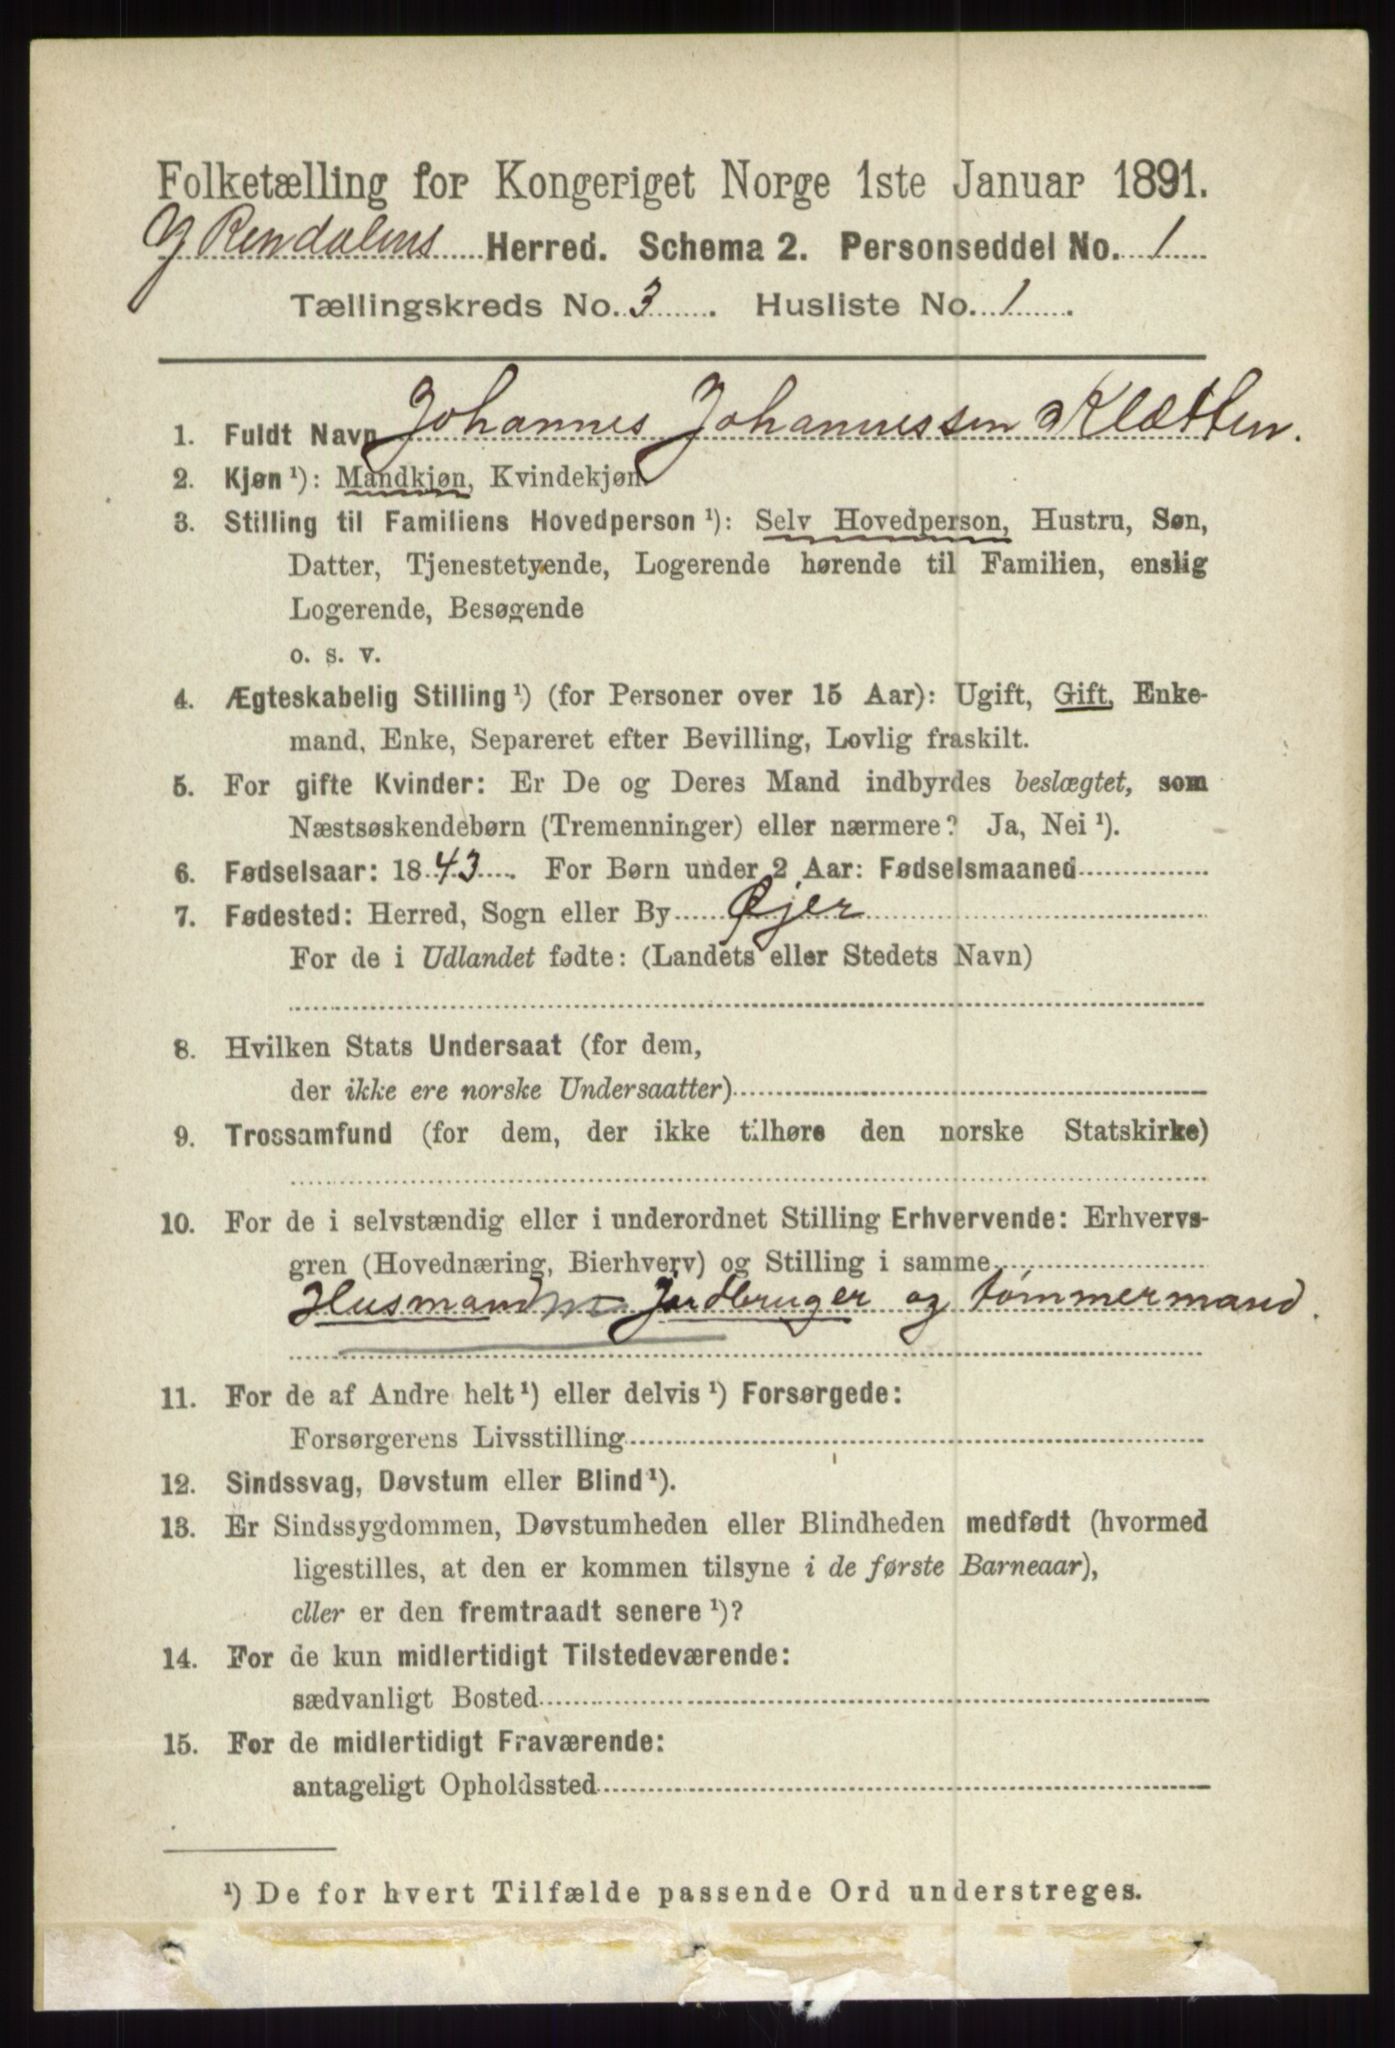 Folketælling for Kongeriget Norge 1ste Januar 1891.
Y Rendalens Herred. Schema 2. Personseddel No. 1
Tællingskreds No. 3. Husliste No. 1.
1. Fuldt Navn Johannes Johannessen Klætten.
2. Kjøn ¹): Mandkjøn, Kvindekjøn
3. Stilling til Familiens Hovedperson ¹): Selv Hovedperson, Hustru, Søn,
Datter, Tjenestetyende, Logerende hørende til Familien, enslig
Logerende, Besøgende
o. s. v.
4. Ægteskabelig Stilling ¹) (for Personer over 15 Aar): Ugift, Gift, Enke-
mand, Enke, Separeret efter Bevilling, Lovlig fraskilt.
5. For gifte Kvinder: Er De og Deres Mand indbyrdes beslægtet, som
Næstsøskendebørn (Tremenninger) eller nærmere? Ja, Nei ¹).
6. Fødselsaar: 1843. For Børn under 2 Aar: Fødselsmaaned
7. Fødested: Herred, Sogn eller By Øjer
For de i Udlandet fødte: (Landets eller Stedets Navn)
8. Hvilken Stats Undersaat (for dem,
der ikke ere norske Undersaatter)
9. Trossamfund (for dem, der ikke tilhøre den norske Statskirke)
10. For de i selvstændig eller i underordnet Stilling Erhvervende: Erhvervs-
gren (Hovednæring, Bierhverv) og Stilling i samme
Husmand m Jordbruger og tømmermand.
11. For de af Andre helt ¹) eller delvis ¹) Forsørgede:
Forsørgerens Livsstilling
12. Sindssvag, Døvstum eller Blind ¹).
13. Er Sindssygdommen, Døvstumheden eller Blindheden medfødt (hvormed
ligestilles, at den er kommen tilsyne i de første Barneaar),
eller er den fremtraadt senere ¹)?
14. For de kun midlertidigt Tilstedeværende:
sædvanligt Bosted
15. For de midlertidigt Fraværende:
antageligt Opholdssted
¹) De for hvert Tilfælde passende Ord understreges.